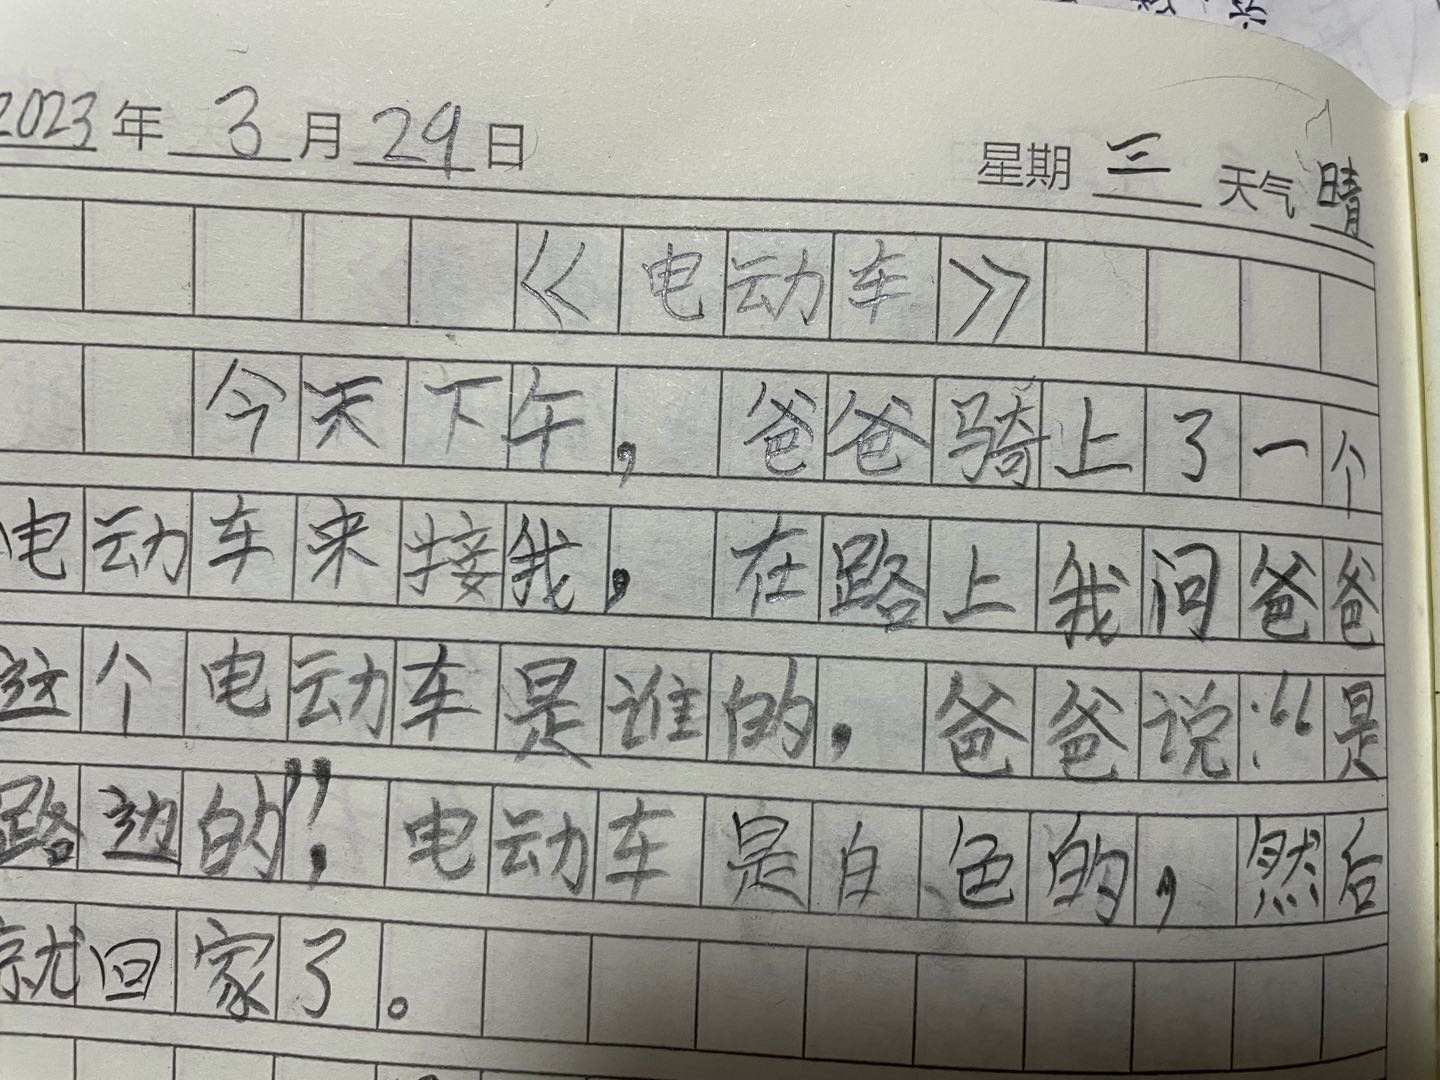 2023年 3 月 29 日 星期 三 天气 晴
《电动车》
今天下午，爸爸骑上了一个
电动车来接我，在路上我问爸爸
这个电动车是谁的，爸爸说：“是
路边的”，电动车是白色的，然后
就回家了。